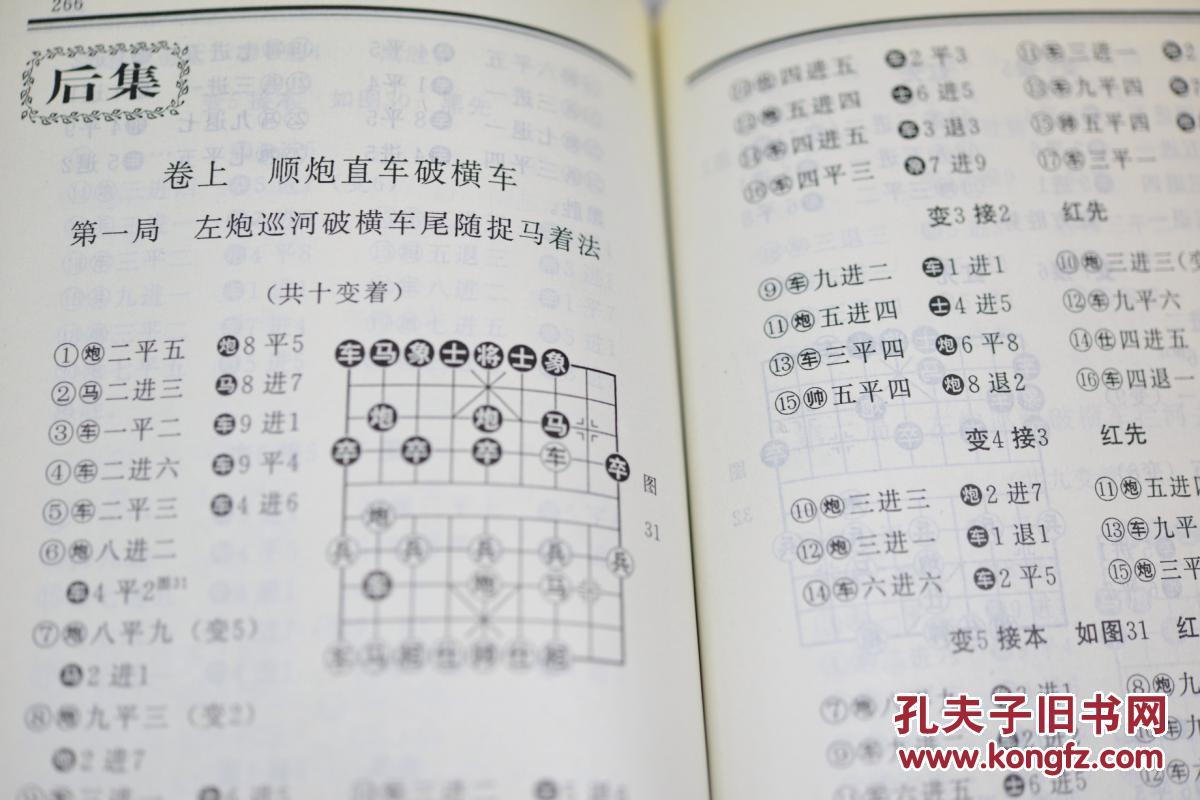 266
后集
卷上 顺炮直车破横车
第一局 左炮巡河破横车尾随捉马着法
(共十变着)
①炮二平五 炮8平5
②马二进三 马8进7
③车一平二 车9进1
④车二进六 车9平4
⑤车二平三 车4进6
⑥炮八进二
车4平2图31
⑦炮八平九(变5)
马2进1
⑧炮九平三(变2)
炮2进7
车马象士将士象
炮 炮 马
卒 卒 卒 车 卒
炮
兵 兵 兵 兵 兵
车 炮 马
车马相仕帅仕相
图
31
仕四进五 车2平3 ⑪车三进一
炮五进四 士6进5 ⑬车九平四
车四进五 车3退3 ⑮帅五平四
⑯车四平三 炮7进9 ⑰车三平一
变3接2 红先
⑨车九进二 车1进1 ⑩炮三进三(变
⑪炮五进四 士4进5 ⑫车九平六
⑬车三平四 炮6平8 ⑭仕四进五
⑮帅五平四 炮8退2 ⑯车四退一
变4接3 红先
⑩炮三进三 炮2进7 ⑪炮五进四
⑫炮三进一 车1退1 ⑬车九平
⑭车六进六 车2平5 ⑮炮三平
变5接本 如图31 红
⑦炮八 进1 ⑧炮九
⑨车九进 2进2 车九
士6进5 ⑫车六
孔夫子旧书网
www.kongfz.com